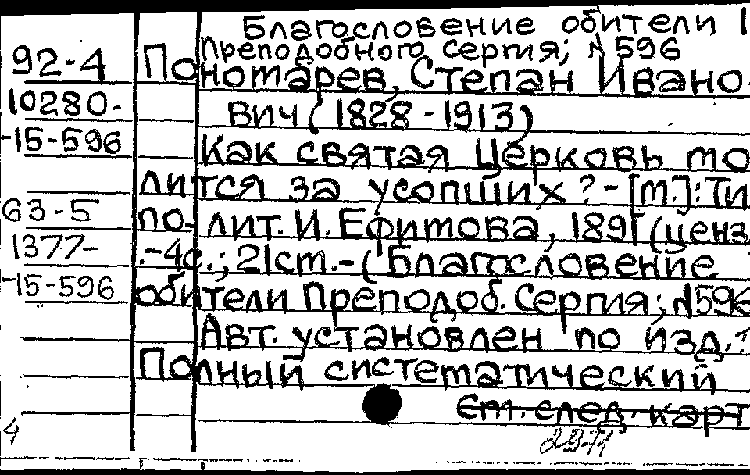 Благословение обители
Преподобного Сергия; №596
92-4 Пономарев, Степан Ивано
10280- вич (1828-1913)
-15-596 Как святая Церковь мо
лится за усопших? - [м.]: Ти
63-5 по-лит. И. Ефимова, 1891 (ценз
1377- .-4с.; 21см.-(Благословение
-15-596 обители Преподоб. Сергия; №596
Авт. установлен по изд.:
Полный систематический
См. след. карт
4 29-71